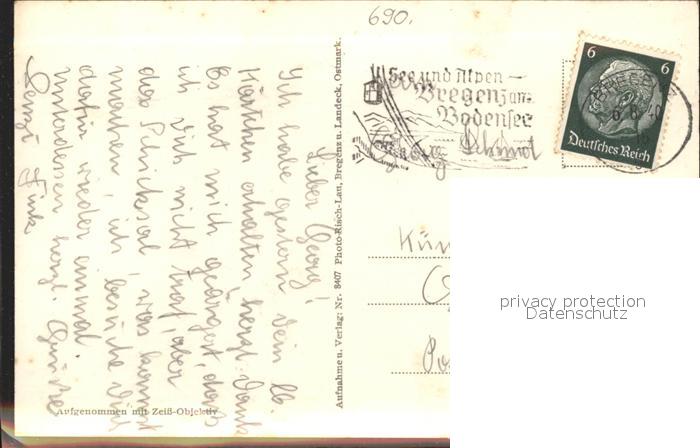 690.
See und Alpen —
Bregenz am
Bodensee
BREGENZ
6.6.40
6 6
Deutsches Reich
Georg Schmid
Lieber Georg!
Ich habe gestern Dein lb.
Kärtchen erhalten, herzl. Dank
Es hat mich geärgert, dass
ich Dich nicht traf, aber
das Schicksal was kommt
machen, ich besuche Dich
dafür wieder einmal
Unterdessen herzl. Grüsse
Fink
Aufnahme u. Verlag: Nr. 8407 Photo-Risch-Lau, Bregenz u. Landeck, Ostmark.
Aufgenommen mit Zeiß-Objektiv
privacy protection
Datenschutz